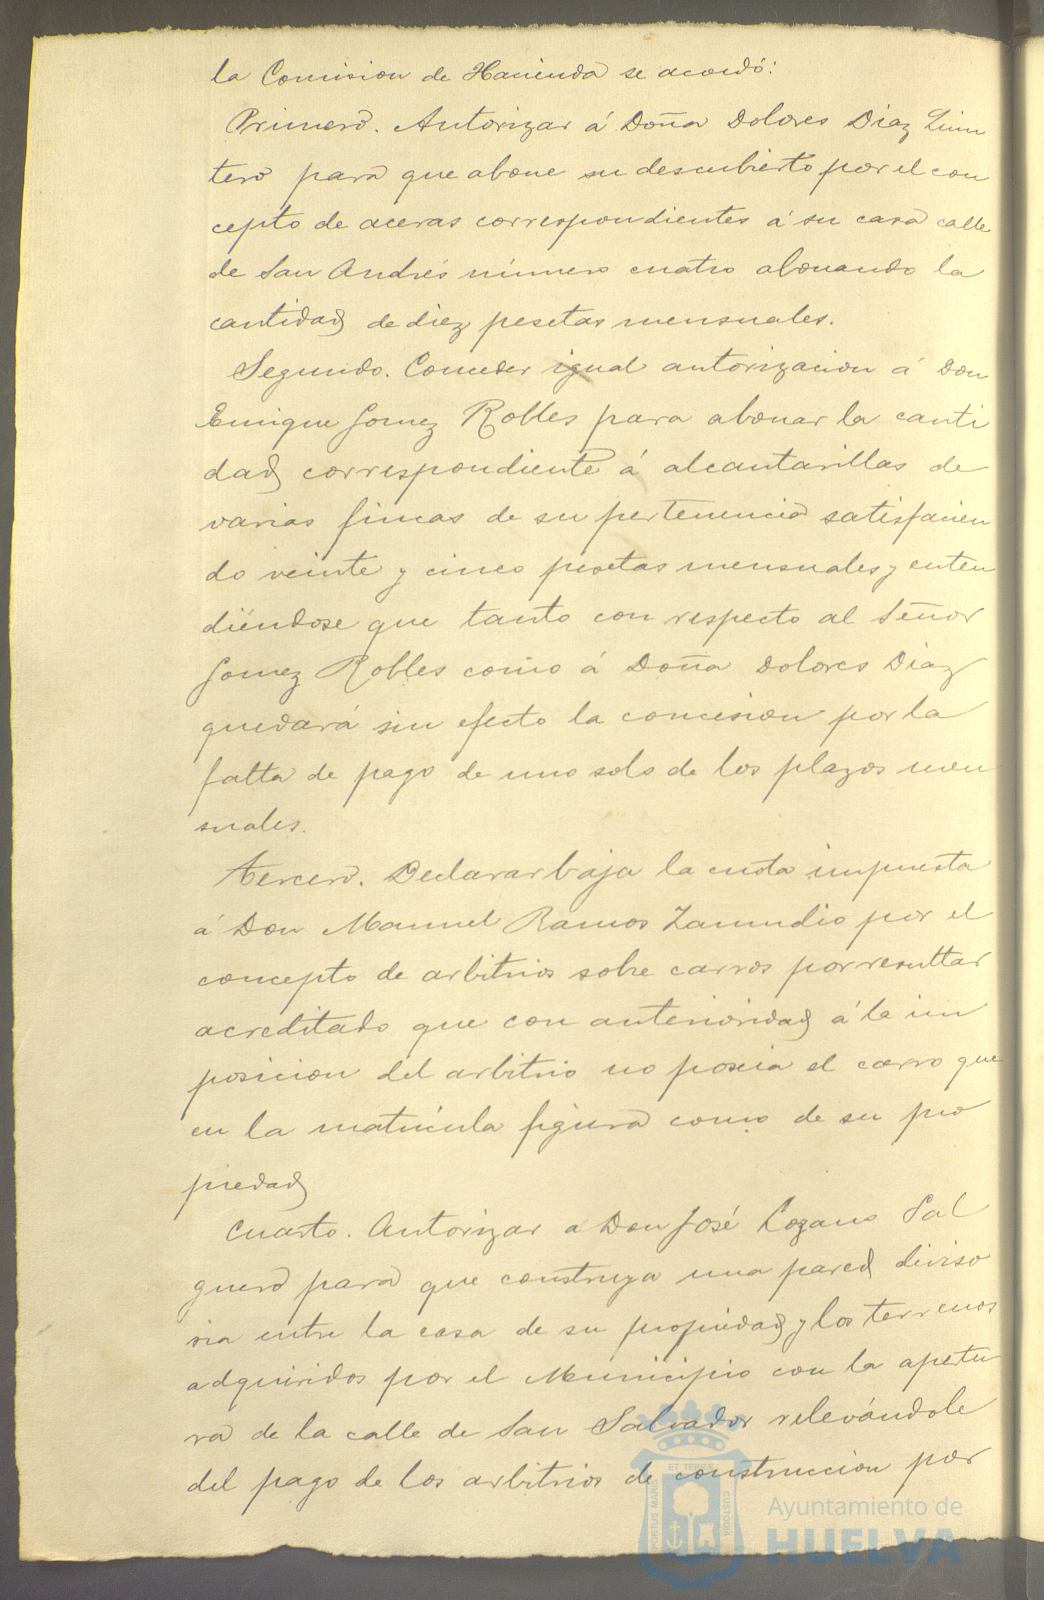 la Comision de Hacienda se acordó:
Primero. Autorizar á Doña Dolores Diaz Quin
tero para que abone su descubierto por el con
cepto de aceras correspondientes á su casa calle
de San Andrés número cuatro abonando la
cantidad de diez pesetas mensuales.
Segundo. Conceder igual autorizacion á Don
Enrique Gomez Robles para abonar la canti
dad correspondiente á alcantarillas de
varias fincas de su pertenencia satisfacien
do veinte y cinco pesetas mensuales, enten
diéndose que tanto con respecto al Señor
Gomez Robles como á Doña Dolores Diaz
quedará sin efecto la concesion por la
falta de pago de uno solo de los plazos men
suales.
Tercero. Declarar baja la cuota impuesta
á Don Manuel Ramos Zamudio por el
concepto de arbitrios sobre carros por resultar
acreditado que con anterioridad á la im
posicion del arbitrio no poseia el carro que
en la matrícula figura como de su pro
piedad
Cuarto. Autorizar a Don José Lozano Sal
guero para que construya una pared diviso
ria entre la casa de su propiedad y los terrenos
adquiridos por el Municipio con la apertu
ra de la calle de San Salvador relevándole
del pago de los arbitrios de construccion por
PORTUS MARIS
ET TERRAE
CUSTODIA
Ayuntamiento de
HUELVA